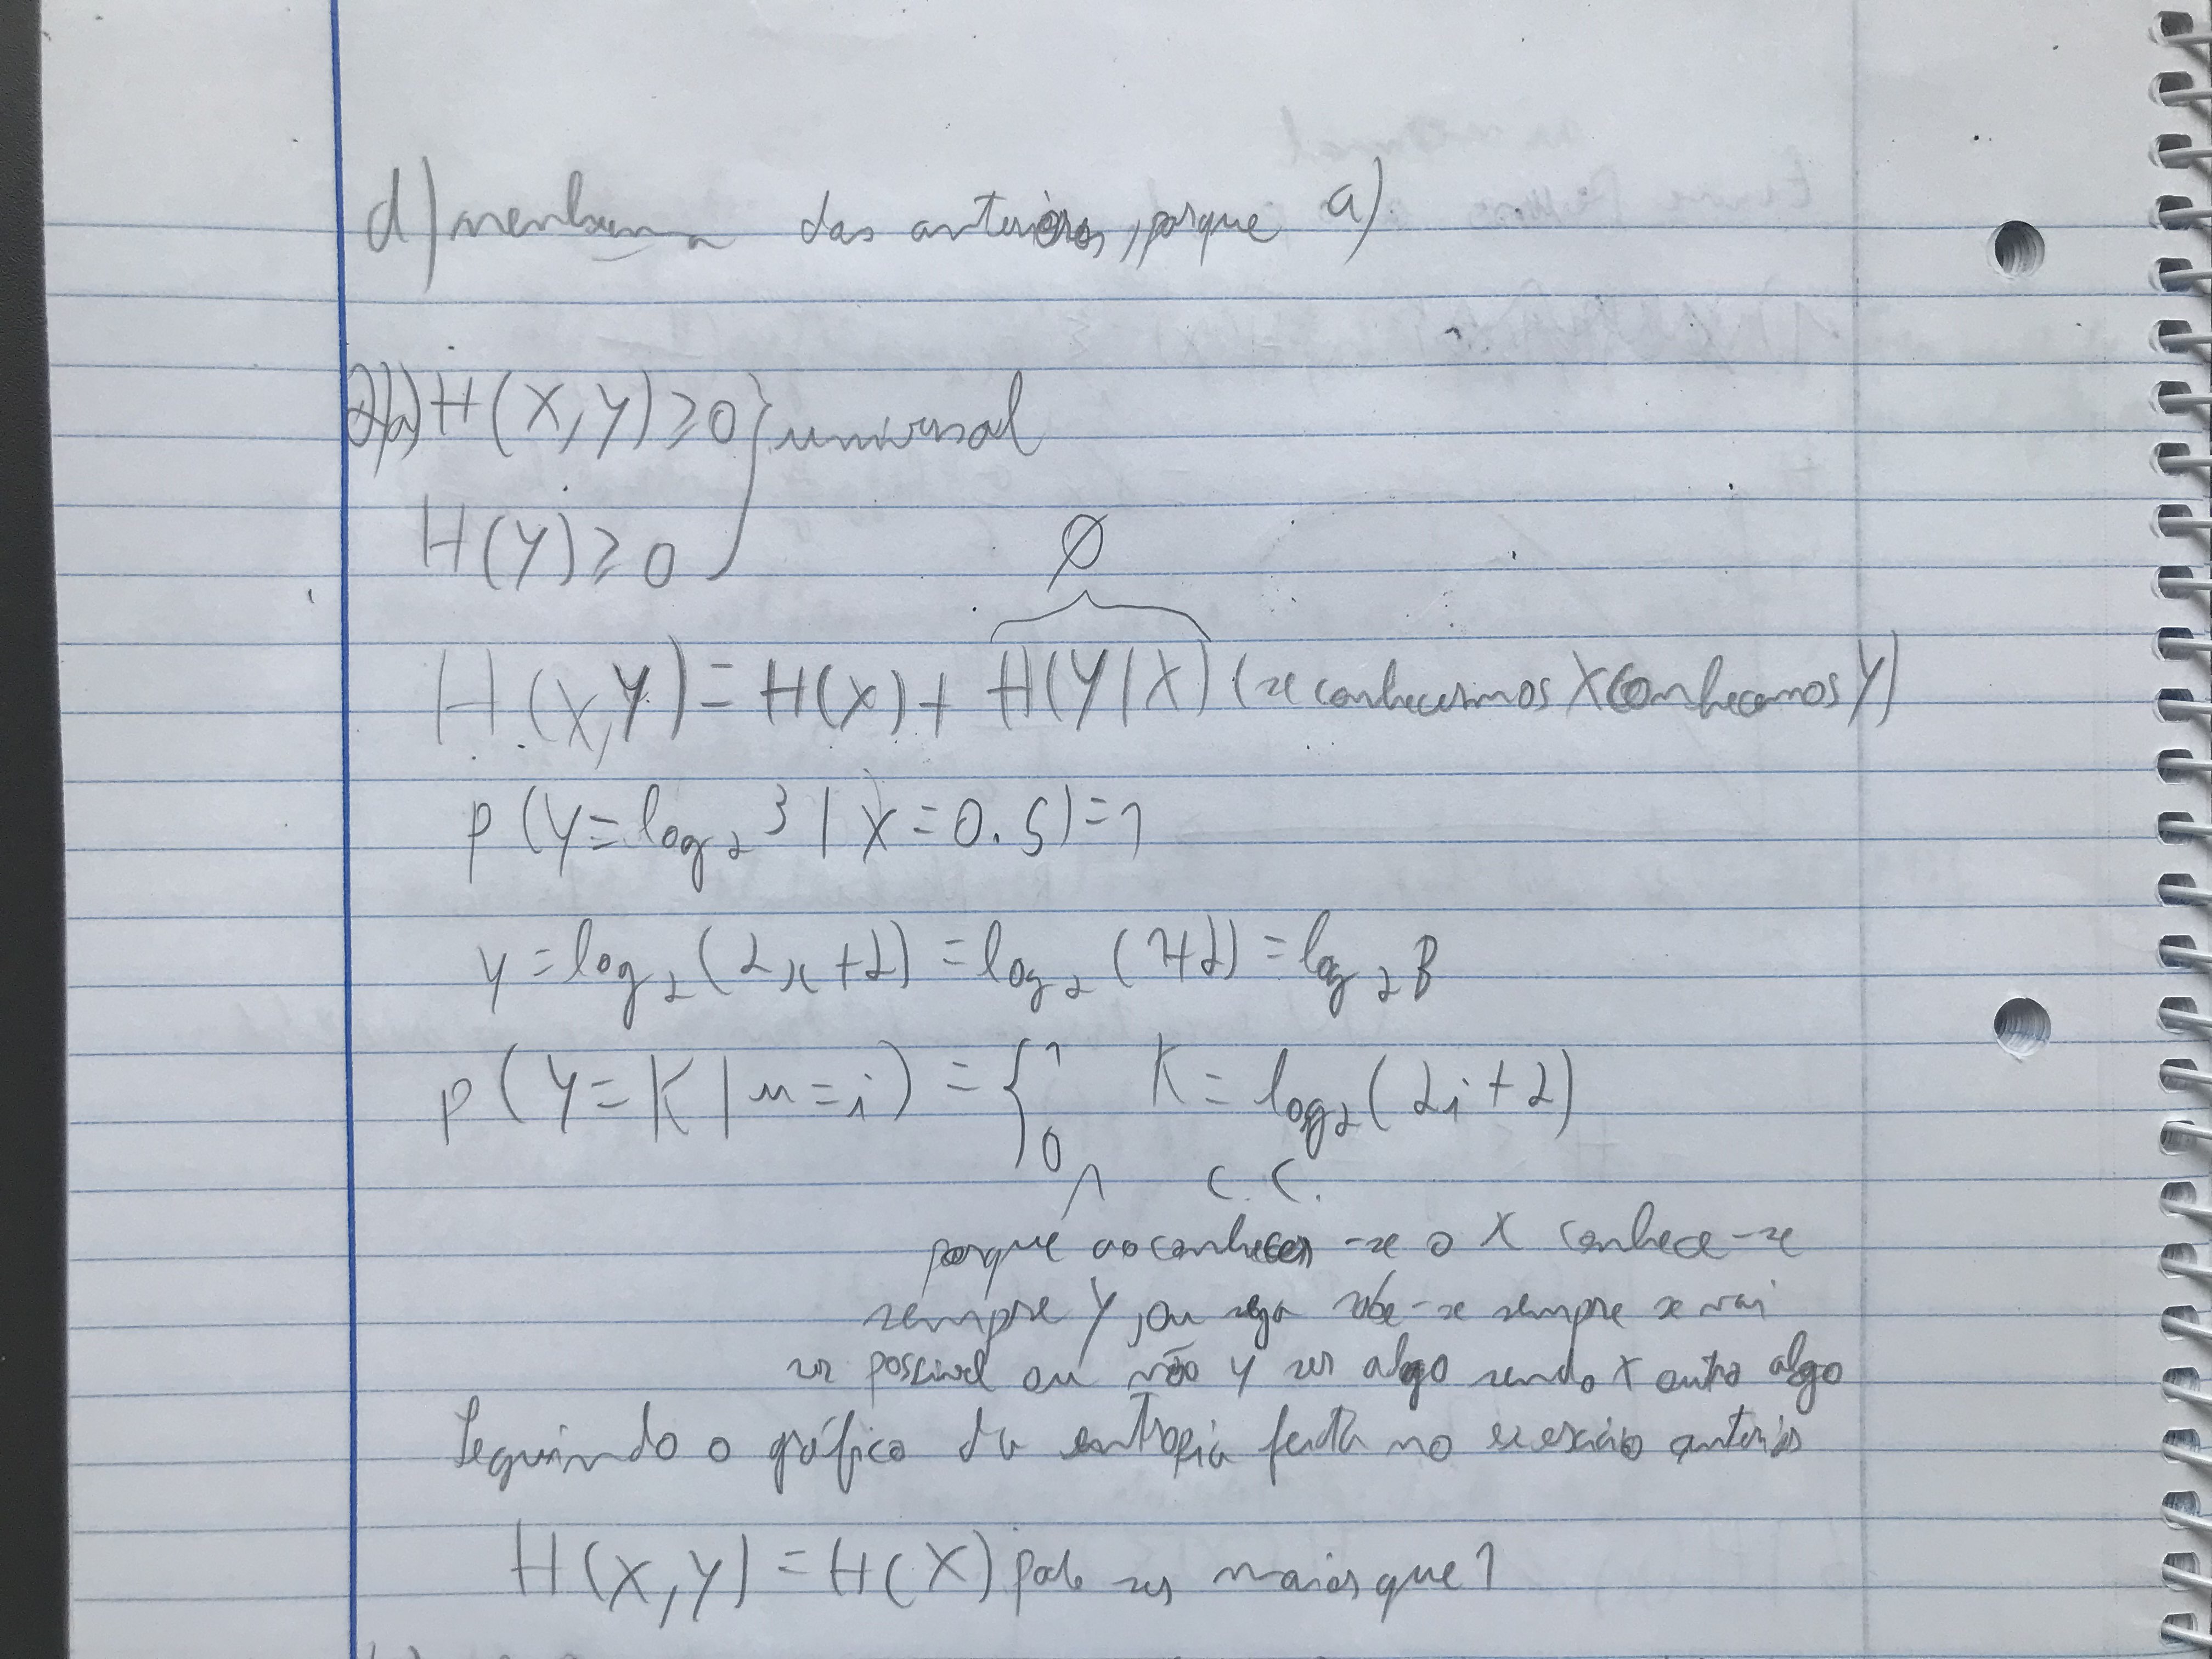 d) nenhuma das anteriores, porque a)
2)a) H(X,Y) ≥ 0 } universal
H(Y) ≥ 0
Ø
H(X,Y) = H(X) + H(Y|X) (se conhecermos X conhecemos Y)
p(Y = log₂ 3 | X = 0.5) = 1
y = log₂(2x+2) = log₂(1+2) = log₂ 3
p(Y = K | x = i) = { 1 K = log₂(2i+2)
0 C.C.
porque ao conhecer-se o X conhece-se
sempre Y, ou seja sabe-se sempre se vai
ser possivel ou não Y ser algo sendo X outro algo
Seguindo o gráfico da entropia feita no exercicio anterior
H(X,Y) = H(X) pode ser maior que 1